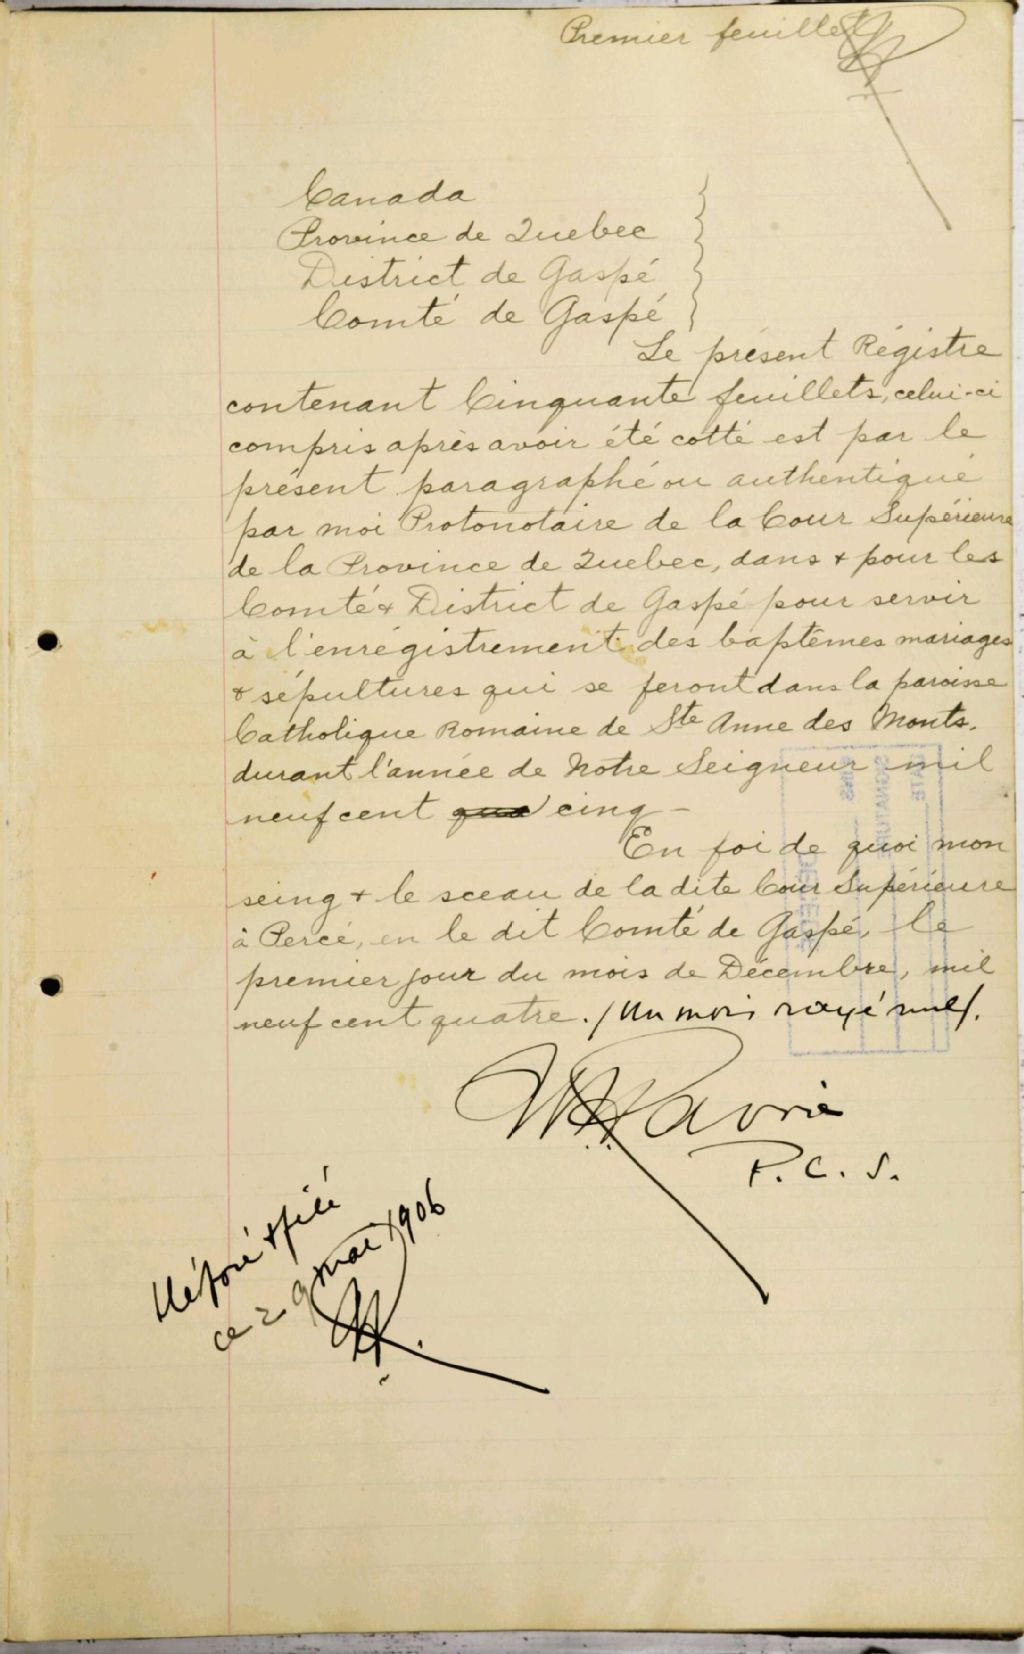 Premier feuillet
Canada
Province de Quebec
District de Gaspé
Comté de Gaspé
Le présent Régistre
contenant Cinquante feuillets, celui-ci
compris après avoir été cotté est par le
présent paragraphé ou authentiqué
par moi Protonotaire de la Cour Supérieure
de la Province de Quebec, dans & pour les
Comté & District de Gaspé pour servir
à l'enrégistrement des baptêmes mariages
& sépultures qui se feront dans la paroisse
Catholique Romaine de Ste Anne des Monts.
durant l'année de Notre Seigneur mil
neuf cent qua cinq -
En foi de quoi mon
seing & le sceau de la dite Cour Supérieure
à Percé, en le dit Comté de Gaspé, le
premier jour du mois de Décembre, mil
neuf cent quatre. / Un mois rayé nul /.
P. C. S.
& filé
ce 29 mai 1906